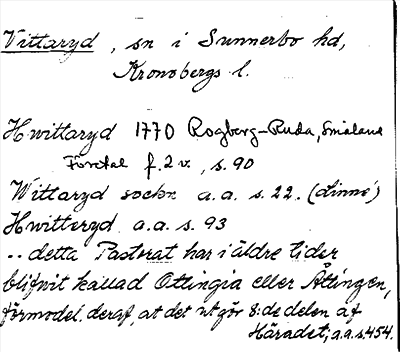 Vittaryd, sn i Sunnerbo hd,
Kronobergs l.
Hwittaryd 1770 Rogberg-Ruda, Småland
Företal f. 2 v., s. 90
Wittaryd sockn a.a. s. 22. (Linné)
Hwitteryd a.a. s. 93
.. detta Pastorat har i äldre tider
blifwit kallad Ottingia eller Åttingen,
förmodel. deraf, at det utgör 8:de delen af
Häradet; a.a. s. 454.